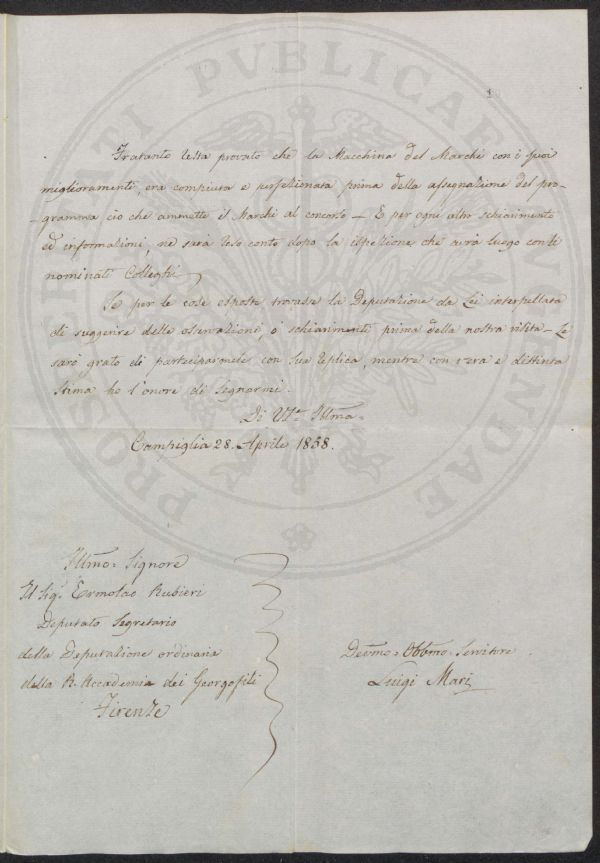 PROSPERITATI PVBLICAE AVGENDAE
Fratanto resta provato che la Macchina del Marchi con i suoi
miglioramenti, era compiuta e perfezionata prima della assegnazione del pro-
-gramma ciò che ammette il Marchi al concorso — E per ogni altro schiarimento
ed informazioni, ne sarà reso conto dopo la ispezione che avrà luogo con ti
nominati Colleghi
Se per le cose esposte trovasse la Deputazione da Lei interpellata
di suggerire delle osservazioni, o schiarimenti prima della nostra visita — Le
sarò grato di parteciparmele con Sua replica, mentre con vera e distinta
stima ho l'onore di segnarmi.
Di VS.a Illma
Campiglia 28. Aprile 1858.
Illmo: Signore
Il Sig.r Ermolao Rubieri
Deputato Segretario
della Deputazione ordinaria
della R. Accademia dei Georgofili
Firenze
Devmo: Obbmo: Servitore
Luigi Mari